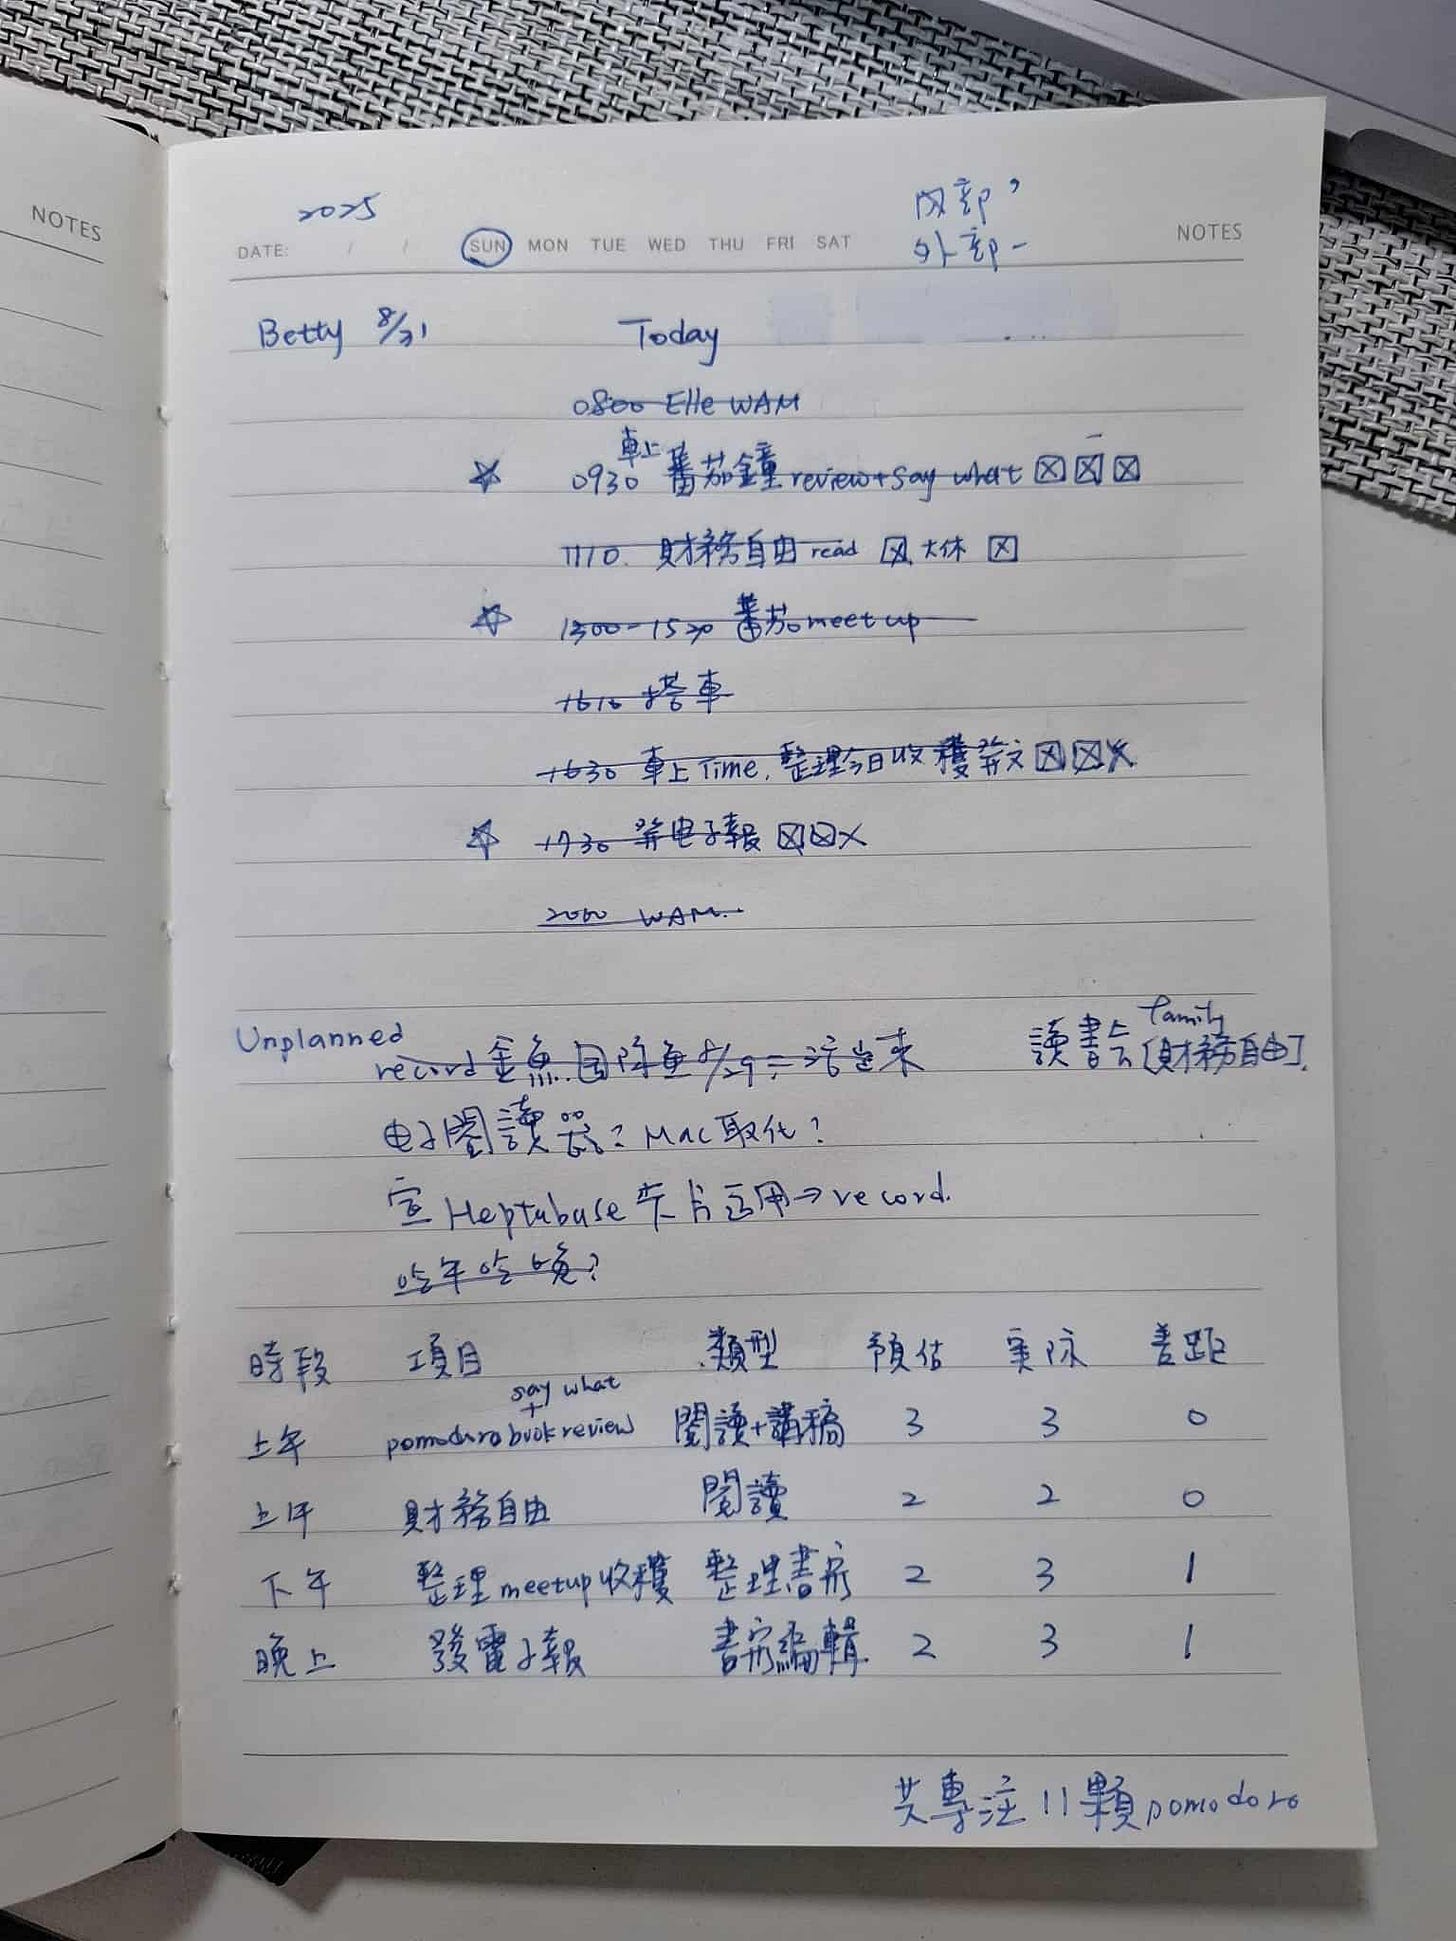 NOTES
2025
內部 ,
外部 -
DATE: / / SUN MON TUE WED THU FRI SAT
NOTES
Betty 8/31
Today
0800 Elle WAM
車上
0930 番茄鐘 review+say what ☒ ☒ ☒
1110. 財務自由 read ☒ 大休 ☒
1300-1520 蕃茄 meet up
1610 搭車
1630 車上 Time, 整理今日收穫 ☒☒X
1730 电子報 ☒☒X
2000 WAM.
Unplanned
record 金魚 8/29
讀書会 family [財務自由].
电子閱讀器? Mac 取代?
宣 Heptabase 卡片运用→record.
時段 項目 類型 預估 実际 差距
say what
+
上午 pomodoro book review 閱讀+講稿 3 3 0
上午 財務自由 閱讀 2 2 0
下午 整理 meetup 收穫 整理書寫 2 3 1
晚上 發電子報 書寫編輯 2 3 1
共專注 11 顆 pomodoro